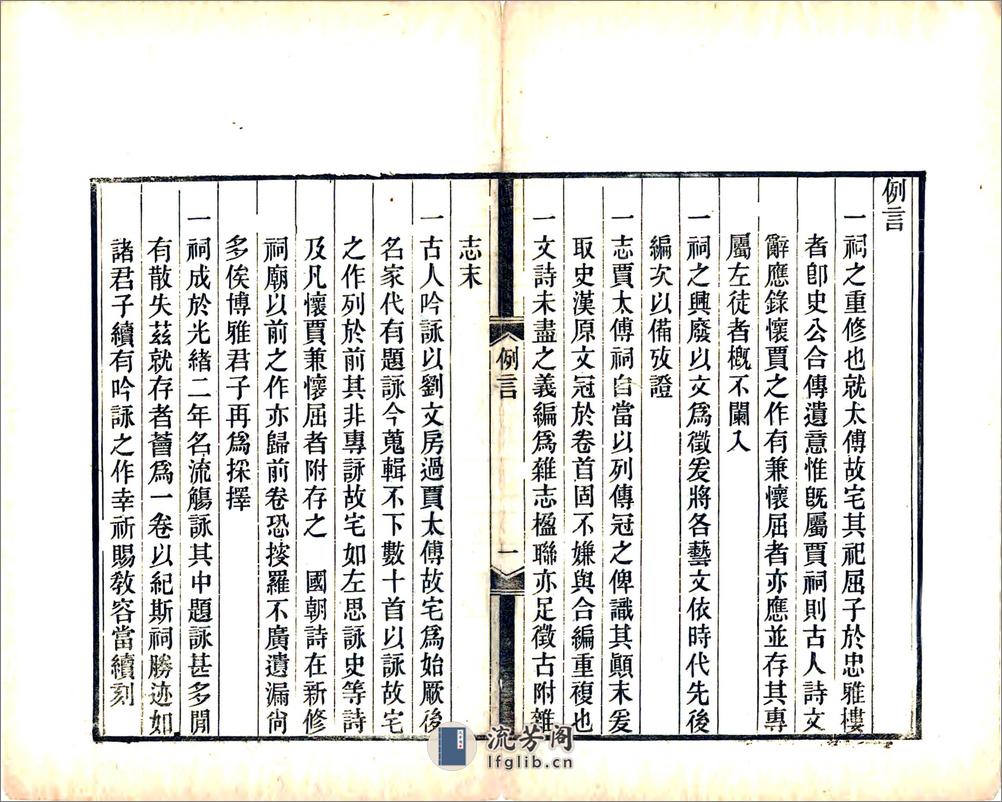 例言
一祠之重修也就太傅故宅其祀屈子於忠雅樓
者卽史公合傳遺意惟旣屬賈祠則古人詩文
辭應錄懷賈之作有兼懷屈者亦應並存其專
屬左徒者槪不闌入
一祠之興廢以文爲徵爰將各藝文依時代先後
編次以備攷證
一志賈太傅祠自當以列傳冠之俾識其顛末爰
取史漢原文冠於卷首固不嫌與合編重複也
一文詩未盡之義編爲雜志楹聯亦足徵古附雜
例言
一
志末
一古人吟詠以劉文房過賈太傅故宅爲始厥後
名家代有題詠今蒐輯不下數十首以詠故宅
之作列於前其非專詠故宅如左思詠史等詩
及凡懷賈兼懷屈者附存之　國朝詩在新修
祠廟以前之作亦歸前卷恐搜羅不廣遺漏尙
多俟博雅君子再爲採擇
一祠成於光緒二年名流觴詠其中題詠甚多閒
有散失茲就存者薈爲一卷以紀斯祠勝迹如
諸君子續有吟詠之作幸祈賜教容當續刻
流芳阁
lfglib.cn